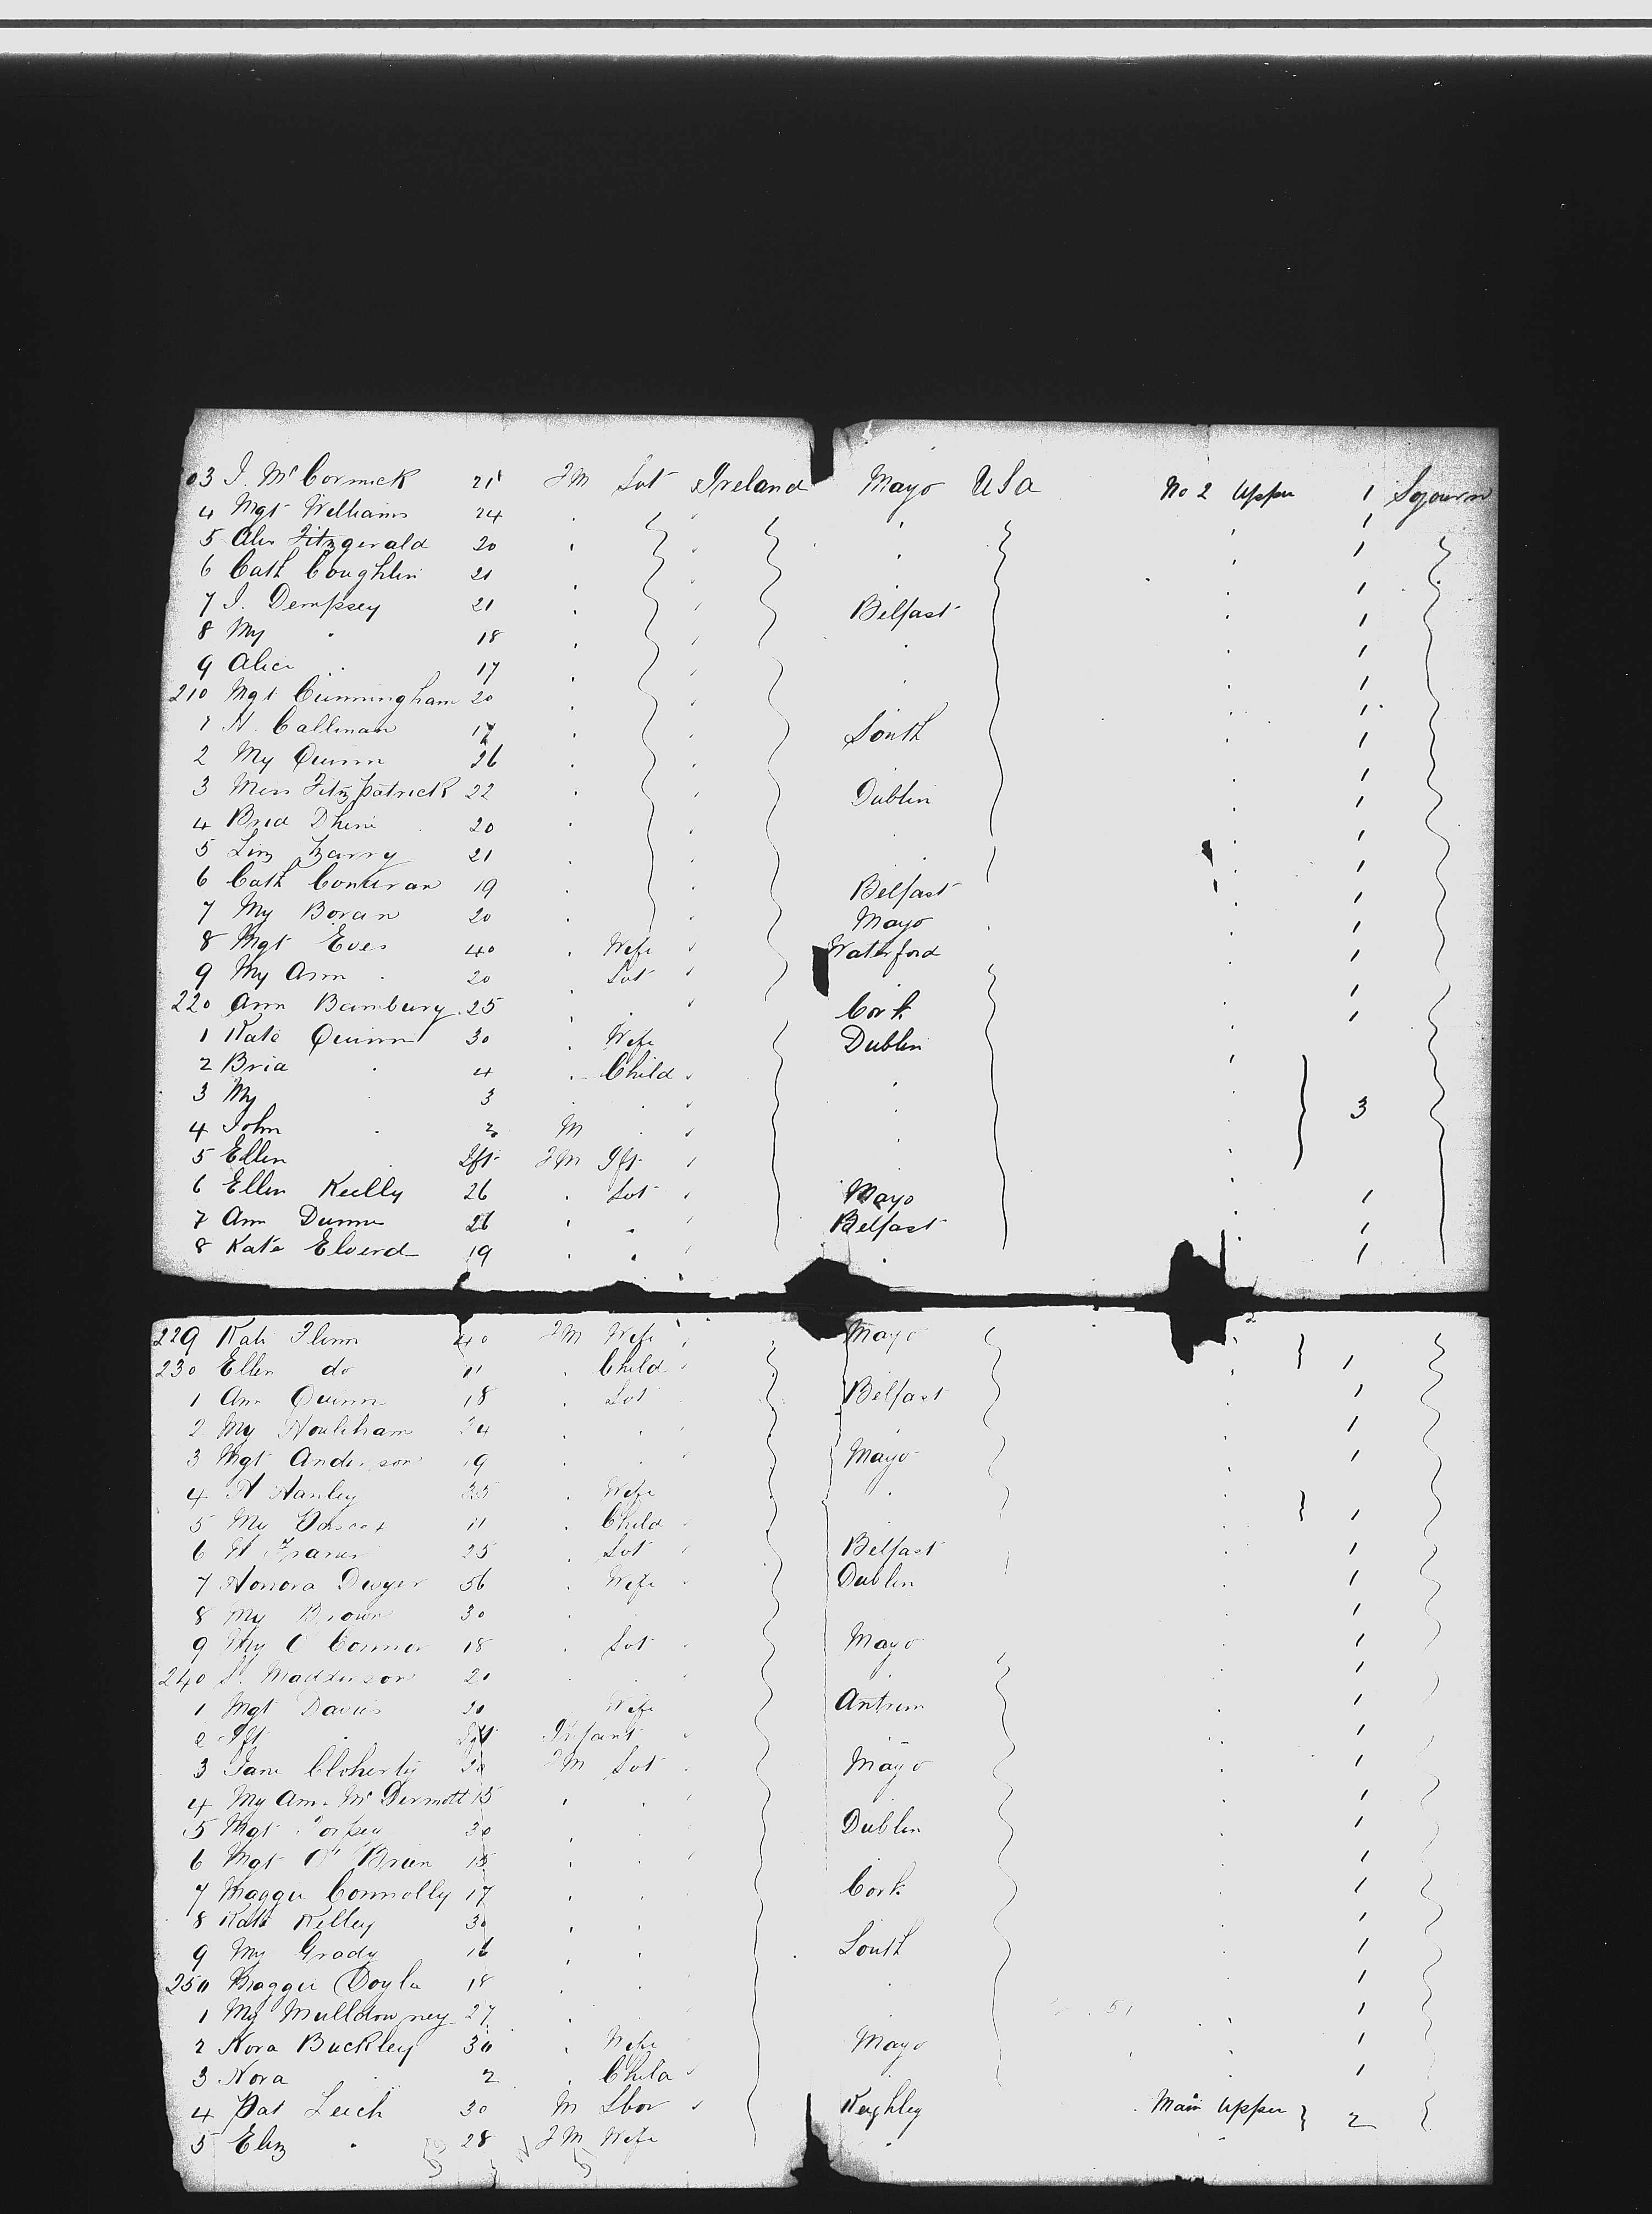 03 J. McCormick 21 FM Svt Ireland Mayo USa No 2 Upper 1 Sojourn
4 Mgt Williams 24 " " 1
5 Alice Fitzgerald 20 " " 1
6 Cath Coughlin 21 1
7 J. Dempsey 21 Belfast 1
8 My " 18 1
9 Alice " 17 1
210 Mgt Cunningham 20 1
1 H. Callinan 17 South 1
2 My Quinn 26 1
3 Miss Fitzpatrick 22 Dublin 1
4 Brid 20 1
5 Liz Barry 21 1
6 Cath 19 Belfast 1
7 My Boran 20 Mayo 1
8 Mgt Eves 40 " Wife Waterford 1
9 My Ann " 20 Svt 1
220 Ann Bambury 25 Cork 1
1 Kate Quinn 30 " Wife Dublin
2 Brid " 4 " Child
3 My 3 3
4 John " 2 M
5 Ellen Ift FM Ift
6 Ellen Kielly 26 " Svt Mayo 1
7 Ann Dunne 26 " " Belfast 1
8 Kate Elverd 19 " " 1
229 Kate Flinn 40 FM Wife Mayo
230 Ellen do 11 " Child 1
1 Ann Quinn 18 " Svt Belfast 1
2 My Houlihan 24 1
3 Mgt Anderson 19 Mayo 1
4 H Hanley 35 " Wife
5 My 11 " Child 1
6 H 25 " Svt Belfast 1
7 Honora Dwyer 56 " Wife Dublin 1
8 My Brown 30 1
9 My O'Connor 18 " Svt Mayo 1
240 S. Madderson 20 1
1 Mgt Davies 20 Wife Antrim 1
2 Ift " Ift Infant
3 Jane Cloherty 30 FM Svt Mayo 1
4 My Ann McDermott 15 1
5 Mgt 30 Dublin 1
6 Mgt O'Brien 15 1
7 Maggie Connolly 17 Cork 1
8 Kate Kelley 30 1
9 My Grady 16 South 1
250 Maggie Doyle 18 1
1 My Mulldowney 27 1
2 Nora Buckley 30 " Wife Mayo 1
3 Nora 2 " Child 1
4 Pat Leich 30 M Lbor Keighley Main Upper 2
5 Eliz " 28 FM Wife "